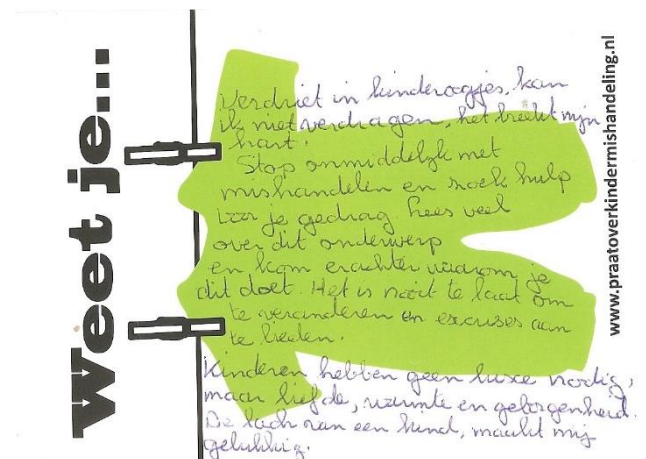 Weet je...
Verdriet in kinderoogjes, kan
ik niet verdragen, het breekt mijn
hart.
Stop onmiddelijk met
mishandelen en zoek hulp
voor je gedrag. Lees veel
over dit onderwerp
en kom erachter waarom je
dit doet. Het is nooit te laat om
te veranderen en excuses aan
te bieden.
Kinderen hebben geen luxe nodig,
maar liefde, warmte en geborgenheid.
De lach van een kind, maakt mij
gelukkig.
www.praatoverkindermishandeling.nl